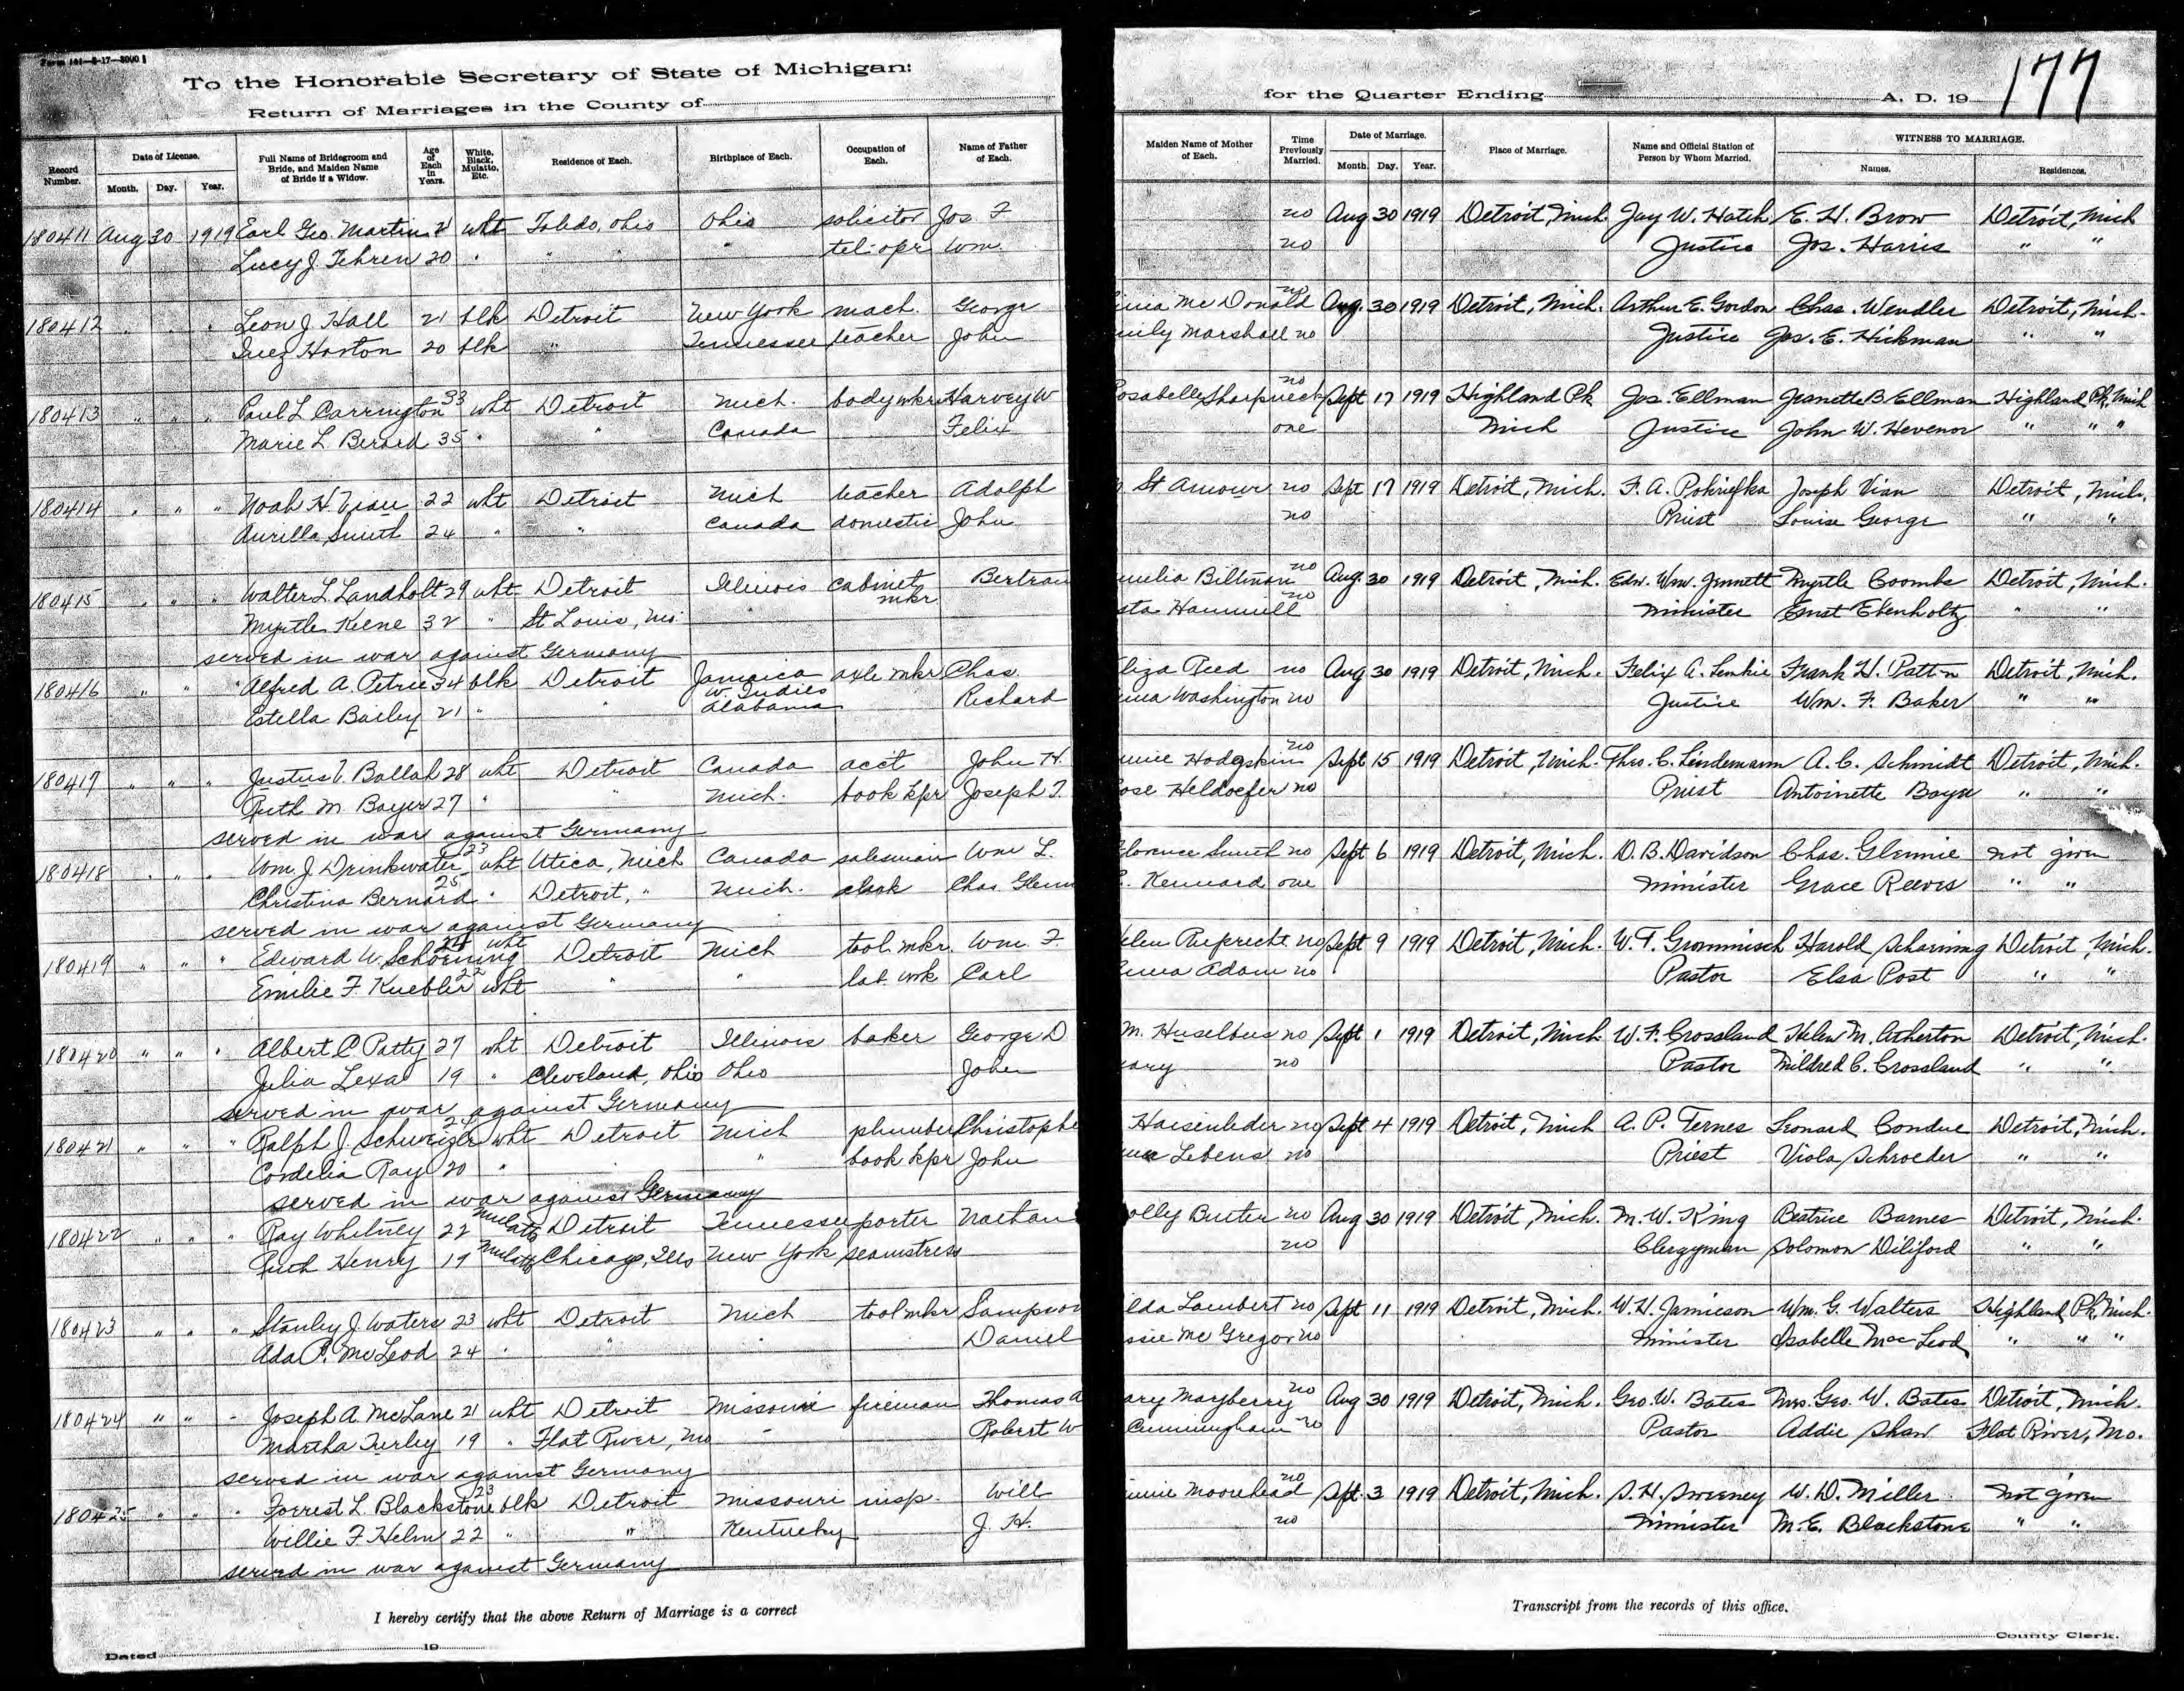 Form 141—8-17—8000
To the Honorable Secretary of State of Michigan:
Return of Marriages in the County of
for the Quarter Ending A. D. 19 177
Record Number. Date of License. Month. Day. Year. Full Name of Bridegroom and Bride, and Maiden Name of Bride if a Widow. Age of Each in Years. White, Black, Mulatto, Etc. Residence of Each. Birthplace of Each. Occupation of Each. Name of Father of Each. Maiden Name of Mother of Each. Time Previously Married. Date of Marriage. Month. Day. Year. Place of Marriage. Name and Official Station of Person by Whom Married. WITNESS TO MARRIAGE. Names. Residences.
180411 Aug 30 1919 Earl Geo. Martin 21 wht Toledo, Ohio Ohio solicitor Jos F no Aug 30 1919 Detroit, Mich. Jay W. Hatch E. H. Brow Detroit, Mich
Lucy J. Tehren 20 " " " " tel. opr Wm no Justice Jos. Harris " "
180412 " " " Leon J. Hall 21 blk Detroit New York mach. George McDonald no Aug. 30 1919 Detroit, Mich. Arthur E. Gordon Chas. Wendler Detroit, Mich.
Inez Horton 20 blk " Tennessee teacher John Marshall no Justice Jos. E. Hickman " "
180413 " " " Paul L Carrington 33 wht Detroit Mich. body mkr Harvey W no Sept 17 1919 Highland Pk Jos. Ellman Jeanette B Ellman Highland Pk, Mich
Marie L. Berard 35 " " Canada Felix one Mich Justice John W. Hevenor " " "
180414 " " " Noah H. Vian 22 wht Detroit Mich teacher Adolph St Amour no Sept 17 1919 Detroit, Mich. F. A. Pokriefka Joseph Vian Detroit, Mich.
Aurilla Smith 24 " " Canada domestic John no Priest Louise George " "
180415 " " " Walter L Landholt 29 wht Detroit Illinois cabinet mkr Bertran Biltman no Aug. 30 1919 Detroit, Mich. Edw. Wm. Jennett Myrtle Coombs Detroit, Mich.
Myrtle Keene 32 " St Louis, Mo. " Hammill no Minister Ernst Ebenholtz " "
served in war against Germany
180416 " " " Alfred A. Petrie 34 blk Detroit Jamaica W. Indies axle mkr Chas. liza Reed no Aug 30 1919 Detroit, Mich. Felix A. Lemkie Frank H. Patton Detroit, Mich.
Estella Bailey 21 " " Alabama Richard Washington no Justice Wm. F. Baker " "
180417 " " " Justus V. Ballah 28 wht Detroit Canada acc't John H. Hodgskin no Sept 15 1919 Detroit, Mich. Theo. C. Lindemann A. C. Schmidt Detroit, Mich.
Ruth M. Bayer 27 " " Mich. book kpr Joseph T. ose Heldoefer no Priest Antoinette Bayer " "
served in war against Germany
180418 " " " Wm. J. Drinkwater 23 wht Utica, Mich Canada salesman Wm L. lorence Smith no Sept 6 1919 Detroit, Mich. D. B. Davidson Chas. Glennie not given
Christina Bernard 25 " Detroit, " Mich. clerk Chas Glenn Kennard one Minister Grace Reeves " "
served in war against Germany
180419 " " " Edward W. Schoening 24 wht Detroit Mich tool mkr. Wm. F. elen Ruprecht no Sept 9 1919 Detroit, Mich. W. F. Grommisch Harold Scharning Detroit, Mich.
Emilie F. Kuebler 22 wht " " lab. wrk Carl Adam no Pastor Elsa Post " "
180420 " " " Albert C. Patty 27 wht Detroit Illinois baker George D M. Huselbus no Sept 1 1919 Detroit, Mich. W. F. Crossland Helen M. Atherton Detroit, Mich.
Julia Lexa 19 " Cleveland, Ohio Ohio John ary no Pastor Mildred C. Crossland " "
served in war against Germany
180421 " " " Ralph J. Schweizler 24 wht Detroit Mich plumber Christophe Haisenleder no Sept 4 1919 Detroit, Mich A. P. Ternes Leonard Condue Detroit, Mich.
Cordelia Ray 20 " " " book kpr John Lebens no Priest Viola Schroeder " "
served in war against Germany
180422 " " " Ray Whitney 22 Mulatto Detroit Tennessee porter Nathan olly Butler no Aug 30 1919 Detroit, Mich. M. W. King Beatrice Barnes Detroit, Mich.
Ruth Henry 19 Mulatto Chicago, Ills New York seamstress no Clergyman Solomon Diliford " "
180423 " " " Stanley J. Waters 23 wht Detroit Mich tool mkr Sampson lda Lambert no Sept 11 1919 Detroit, Mich. W. H. Jamieson Wm. G. Walters Highland Pk, Mich.
Ada P. McLeod 24 " " " Daniel ssie McGregor no Minister Isabelle MacLeod " " "
180424 " " " Joseph A. McLane 21 wht Detroit Missouri fireman Thomas A ary Mayberry no Aug 30 1919 Detroit, Mich. Geo. W. Bates Mrs. Geo. W. Bates Detroit, Mich.
Martha Turley 19 " Flat River, Mo " Robert W Cunningham no Pastor Addie Shaw Flat River, Mo.
served in war against Germany
180425 " " " Forrest L. Blackstone 23 blk Detroit Missouri insp. Will Moorehead no Sept. 3 1919 Detroit, Mich. S. H. Sweeney W. D. Miller Not given
Willie F Helm 22 " " Kentucky J. H. no Minister M. E. Blackstone " "
served in war against Germany
I hereby certify that the above Return of Marriage is a correct Transcript from the records of this office.
Dated 19 County Clerk.